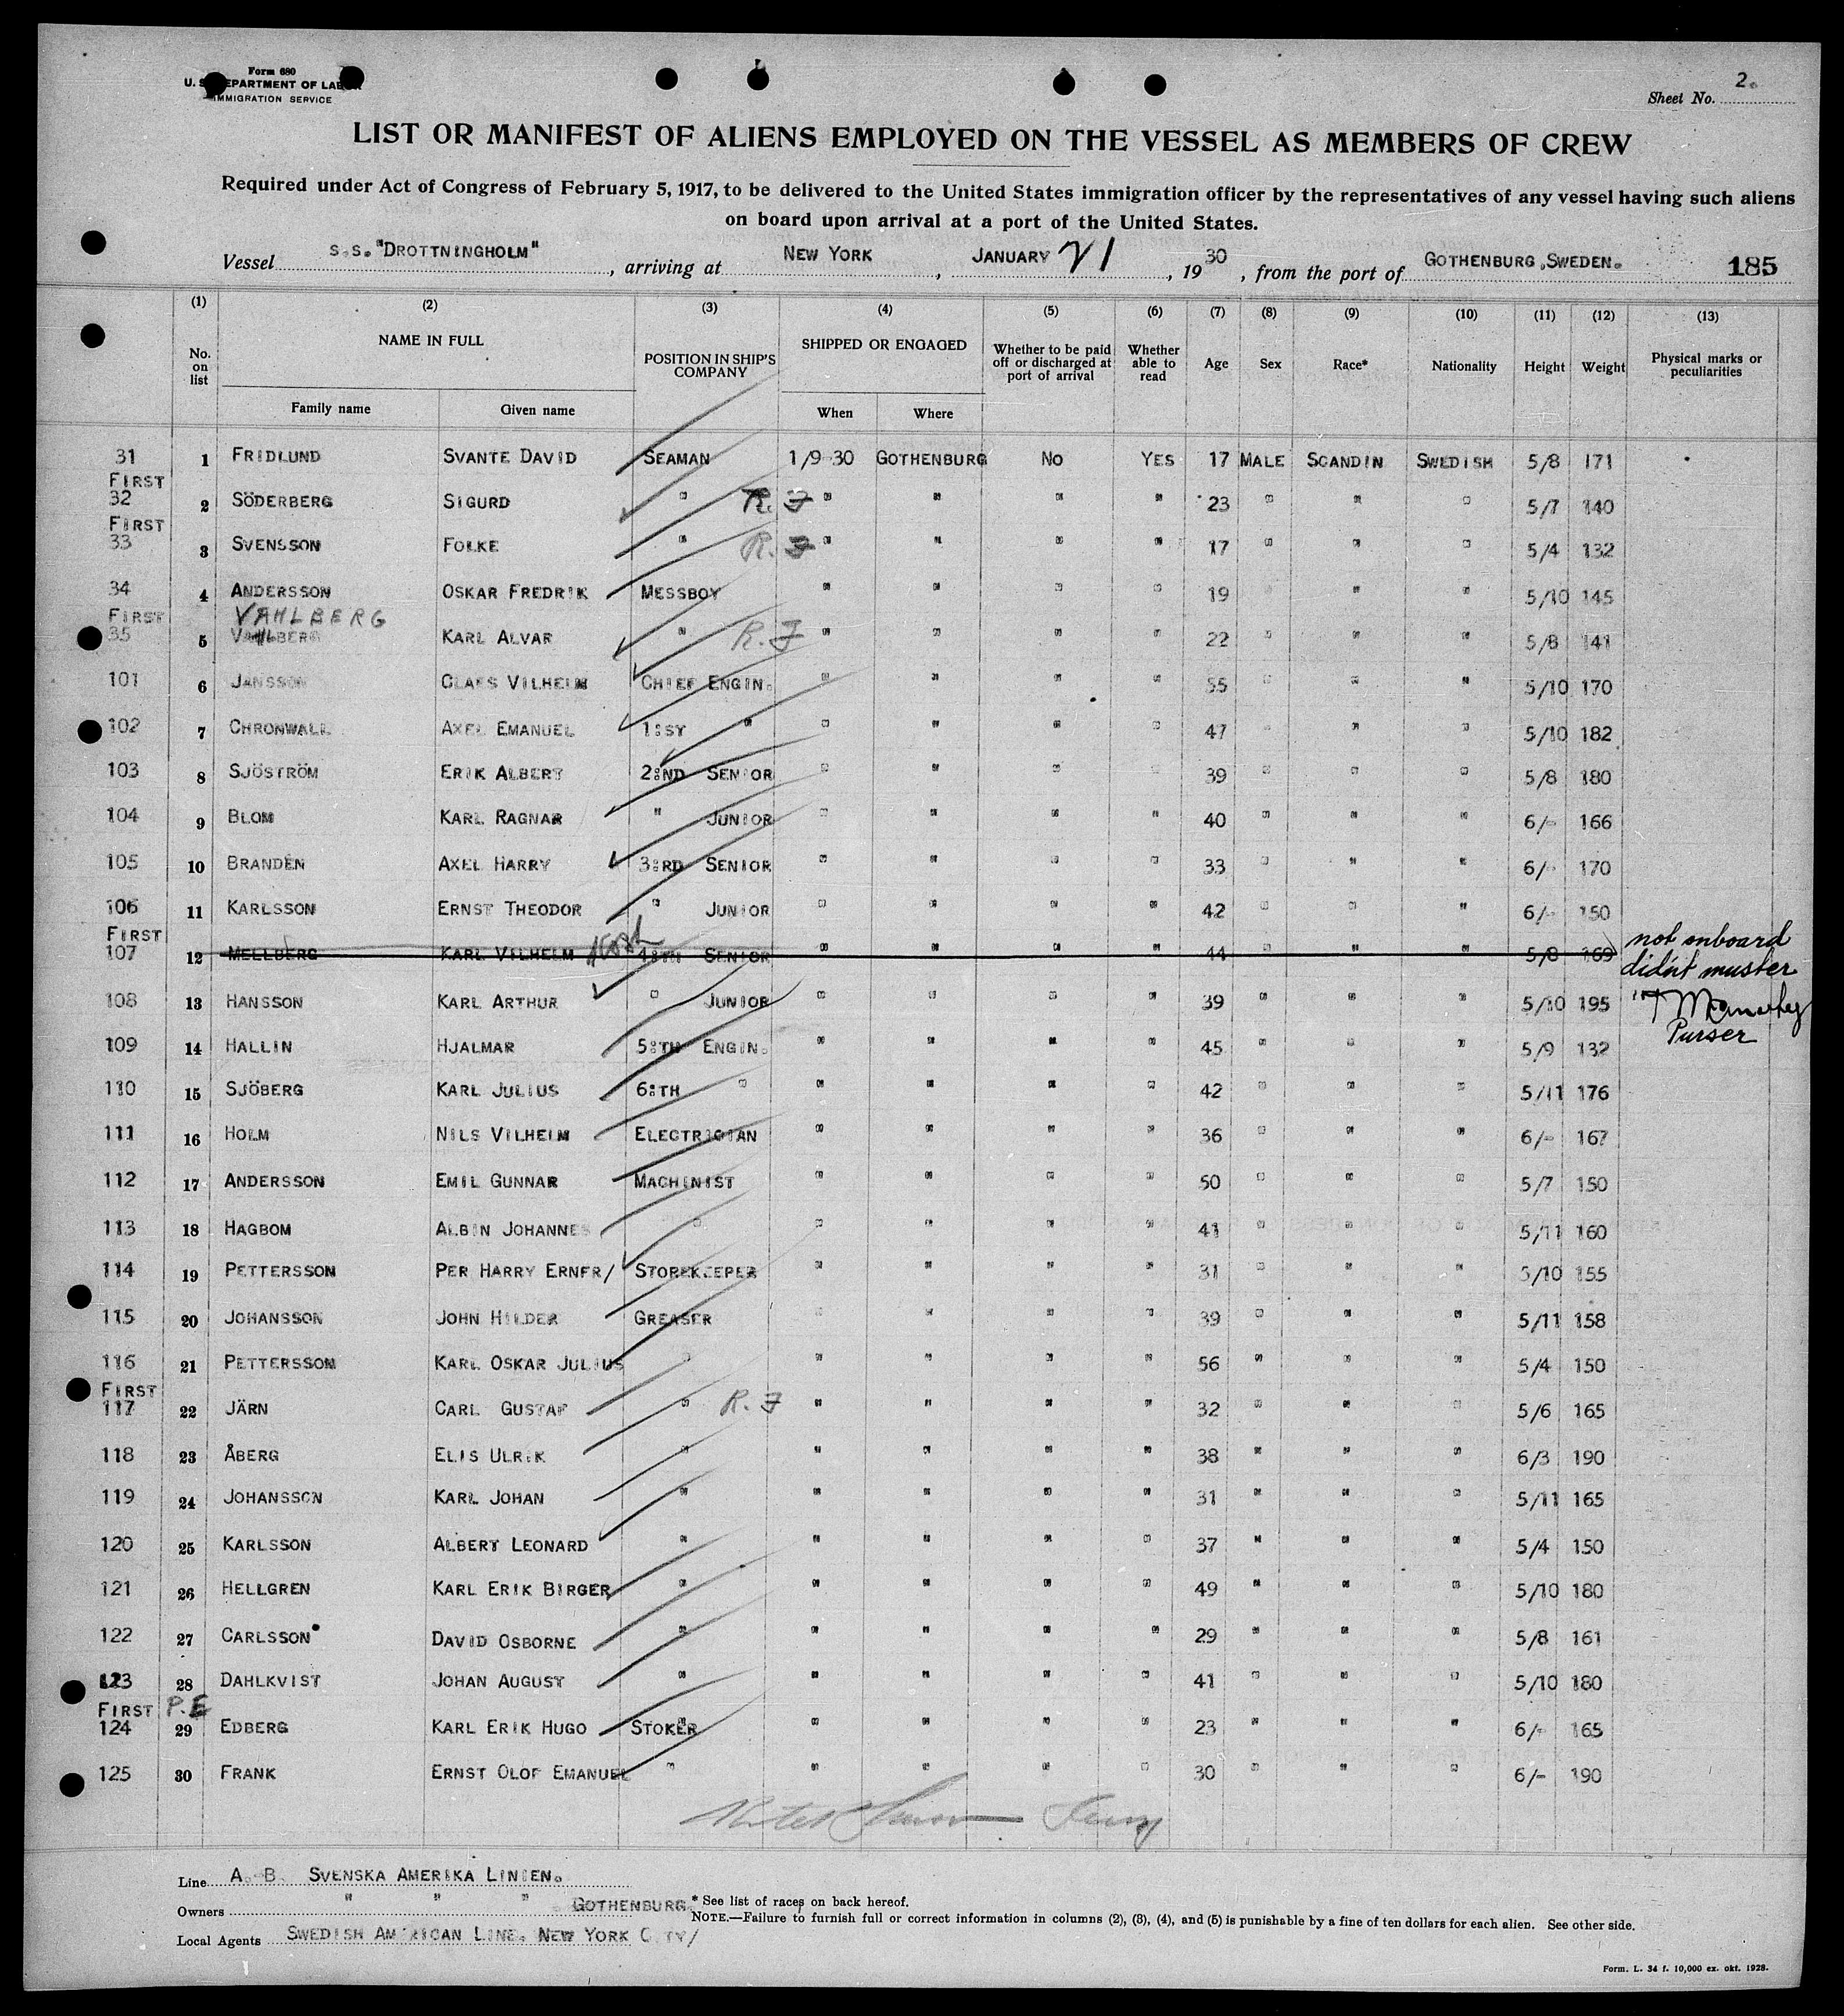 Form 680
U. S. DEPARTMENT OF LABOR
IMMIGRATION SERVICE
Sheet No. 2.
LIST OR MANIFEST OF ALIENS EMPLOYED ON THE VESSEL AS MEMBERS OF CREW
Required under Act of Congress of February 5, 1917, to be delivered to the United States immigration officer by the representatives of any vessel having such aliens
on board upon arrival at a port of the United States.
Vessel S.S. "DROTTNINGHOLM", arriving at NEW YORK, JANUARY 21, 1930, from the port of GOTHENBURG, SWEDEN. 185
(1) (2) (3) (4) (5) (6) (7) (8) (9) (10) (11) (12) (13)
No. on list NAME IN FULL POSITION IN SHIP'S COMPANY SHIPPED OR ENGAGED Whether to be paid off or discharged at port of arrival Whether able to read Age Sex Race* Nationality Height Weight Physical marks or peculiarities
Family name Given name When Where
31 1 FRIDLUND SVANTE DAVID SEAMAN 1/9-30 GOTHENBURG NO YES 17 MALE SCANDIN SWEDISH 5/8 171
FIRST
32 2 SÖDERBERG SIGURD " R. F " " " " 23 " " " 5/7 140
FIRST
33 3 SVENSSON FOLKE " R. F " " " " 17 " " " 5/4 132
34 4 ANDERSSON OSKAR FREDRIK MESSBOY " " " " 19 " " 5/10 145
FIRST VAHLBERG
35 5 VAHLBERG KARL ALVAR " R. F " " " " 22 " " " 5/8 141
101 6 JANSSON CLAES VILHELM CHIEF ENGIN. " " " " 55 " " " 5/10 170
102 7 CHRONWALL AXEL EMANUEL 1:ST " " " " " 47 " " " 5/10 182
103 8 SJÖSTRÖM ERIK ALBERT 2:ND SENIOR " " " " 39 " " " 5/8 180
104 9 BLOM KARL RAGNAR " JUNIOR " " " " 40 " " " 6/- 166
105 10 BRANDÉN AXEL HARRY 3:RD SENIOR " " " " 33 " " " 6/- 170
106 11 KARLSSON ERNST THEODOR " JUNIOR " " " " 42 " " " 6/- 150
FIRST
107 12 MELLBERG KARL VILHELM 4:TH SENIOR " " " " 44 " " " 5/8 169 not onboard
didn't muster
108 13 HANSSON KARL ARTHUR " JUNIOR " " " " 39 " " " 5/10 195
Purser
109 14 HALLIN HJALMAR 5:TH ENGIN. " " " " 45 " " " 5/9 132
110 15 SJÖBERG KARL JULIUS 6:TH " " " " " 42 " " " 5/11 176
111 16 HOLM NILS VILHELM ELECTRICIAN " " " " 36 " " " 6/- 167
112 17 ANDERSSON EMIL GUNNAR MACHINIST " " " " 50 " " " 5/7 150
113 18 HAGBOM ALBIN JOHANNES " " " " " 41 " " " 5/11 160
114 19 PETTERSSON PER HARRY ERNER/ STOREKEEPER " " " " 31 " " " 5/10 155
115 20 JOHANSSON JOHN HILDER GREASER " " " " 39 " " " 5/11 158
116 21 PETTERSSON KARL OSKAR JULIUS " " " " " 56 " " " 5/4 150
FIRST
117 22 JÄRN CARL GUSTAF " R. F " " " " 32 " " " 5/6 165
118 23 ÅBERG ELIS ULRIK " " " " " 38 " " " 6/3 190
119 24 JOHANSSON KARL JOHAN " " " " " 31 " " " 5/11 165
120 25 KARLSSON ALBERT LEONARD " " " " " 37 " " " 5/4 150
121 26 HELLGREN KARL ERIK BIRGER " " " " " 49 " " " 5/10 180
122 27 CARLSSON DAVID OSBORNE " " " " " 29 " " " 5/8 161
123 28 DAHLKVIST JOHAN AUGUST " " " " " 41 " " " 5/10 180
FIRST P.E
124 29 EDBERG KARL ERIK HUGO STOKER " " " " 23 " " " 6/- 165
125 30 FRANK ERNST OLOF EMANUEL " " " " " 30 " " " 6/- 190
Line A. B. SVENSKA AMERIKA LINIEN.
Owners " " " GOTHENBURG
* See list of races on back hereof.
NOTE.—Failure to furnish full or correct information in columns (2), (3), (4), and (5) is punishable by a fine of ten dollars for each alien. See other side.
Local Agents SWEDISH AMERICAN LINE. NEW YORK CITY/
Form. L. 34 f. 10,000 ex. okt. 1928.